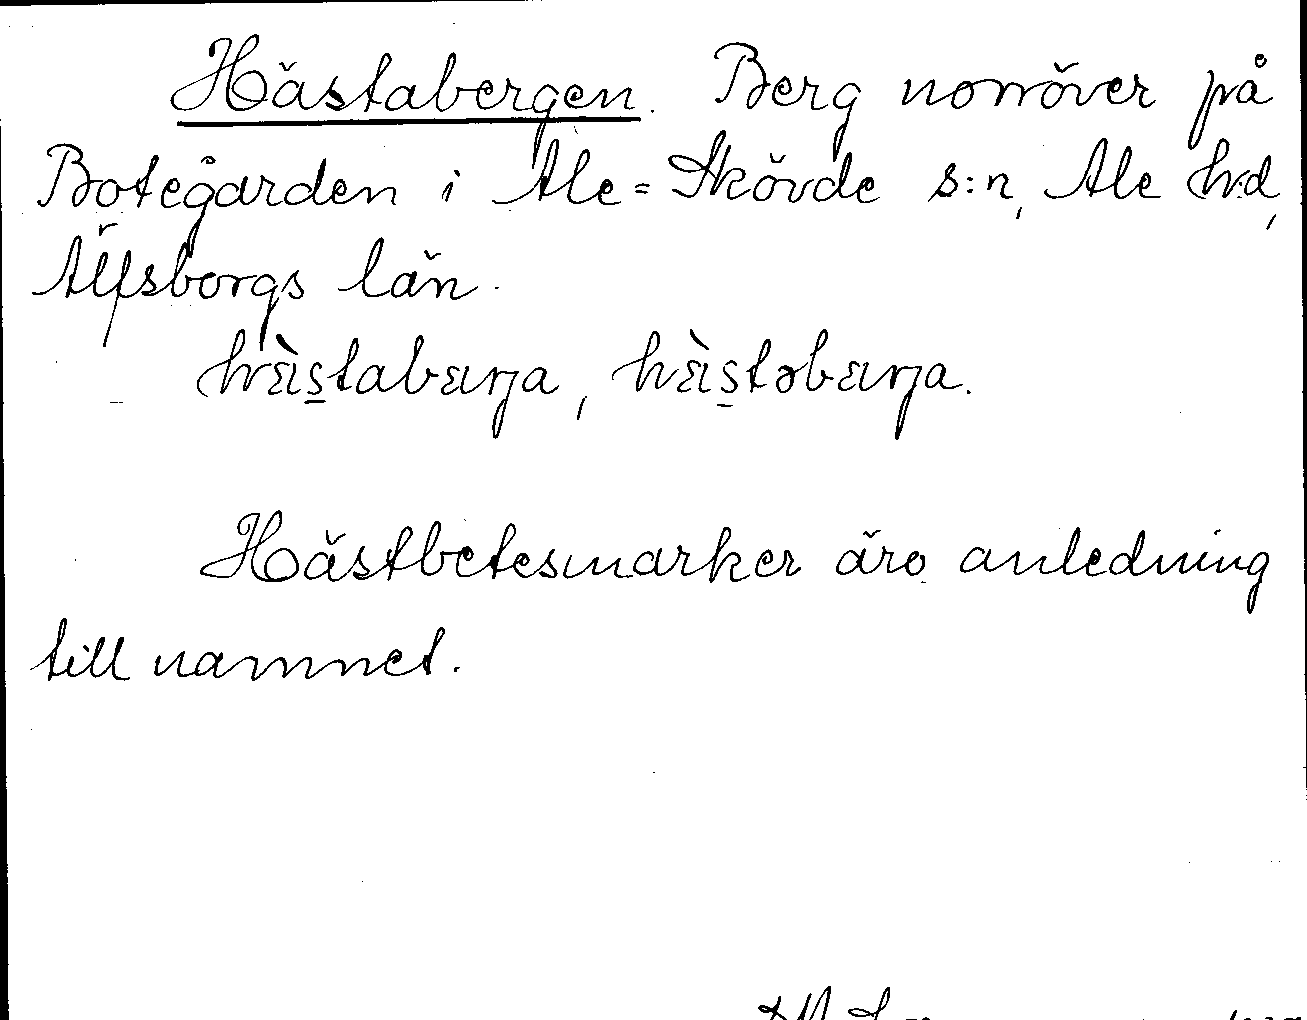 Hästabergen. Berg norröver på
Botegården i Ale-Skövde s:n, Ale hd,
Älfsborgs län.
hæ̀staba̢rja, hæ̀stəbærja.
Hästbetesmarker äro anledning
till namnet.